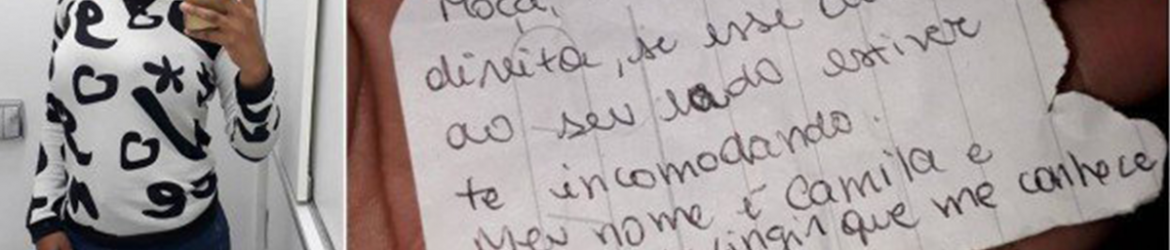 Moça,
direita, se esse
ao seu lado estiver
te incomodando.
Meu nome é Camila e
que me conhece